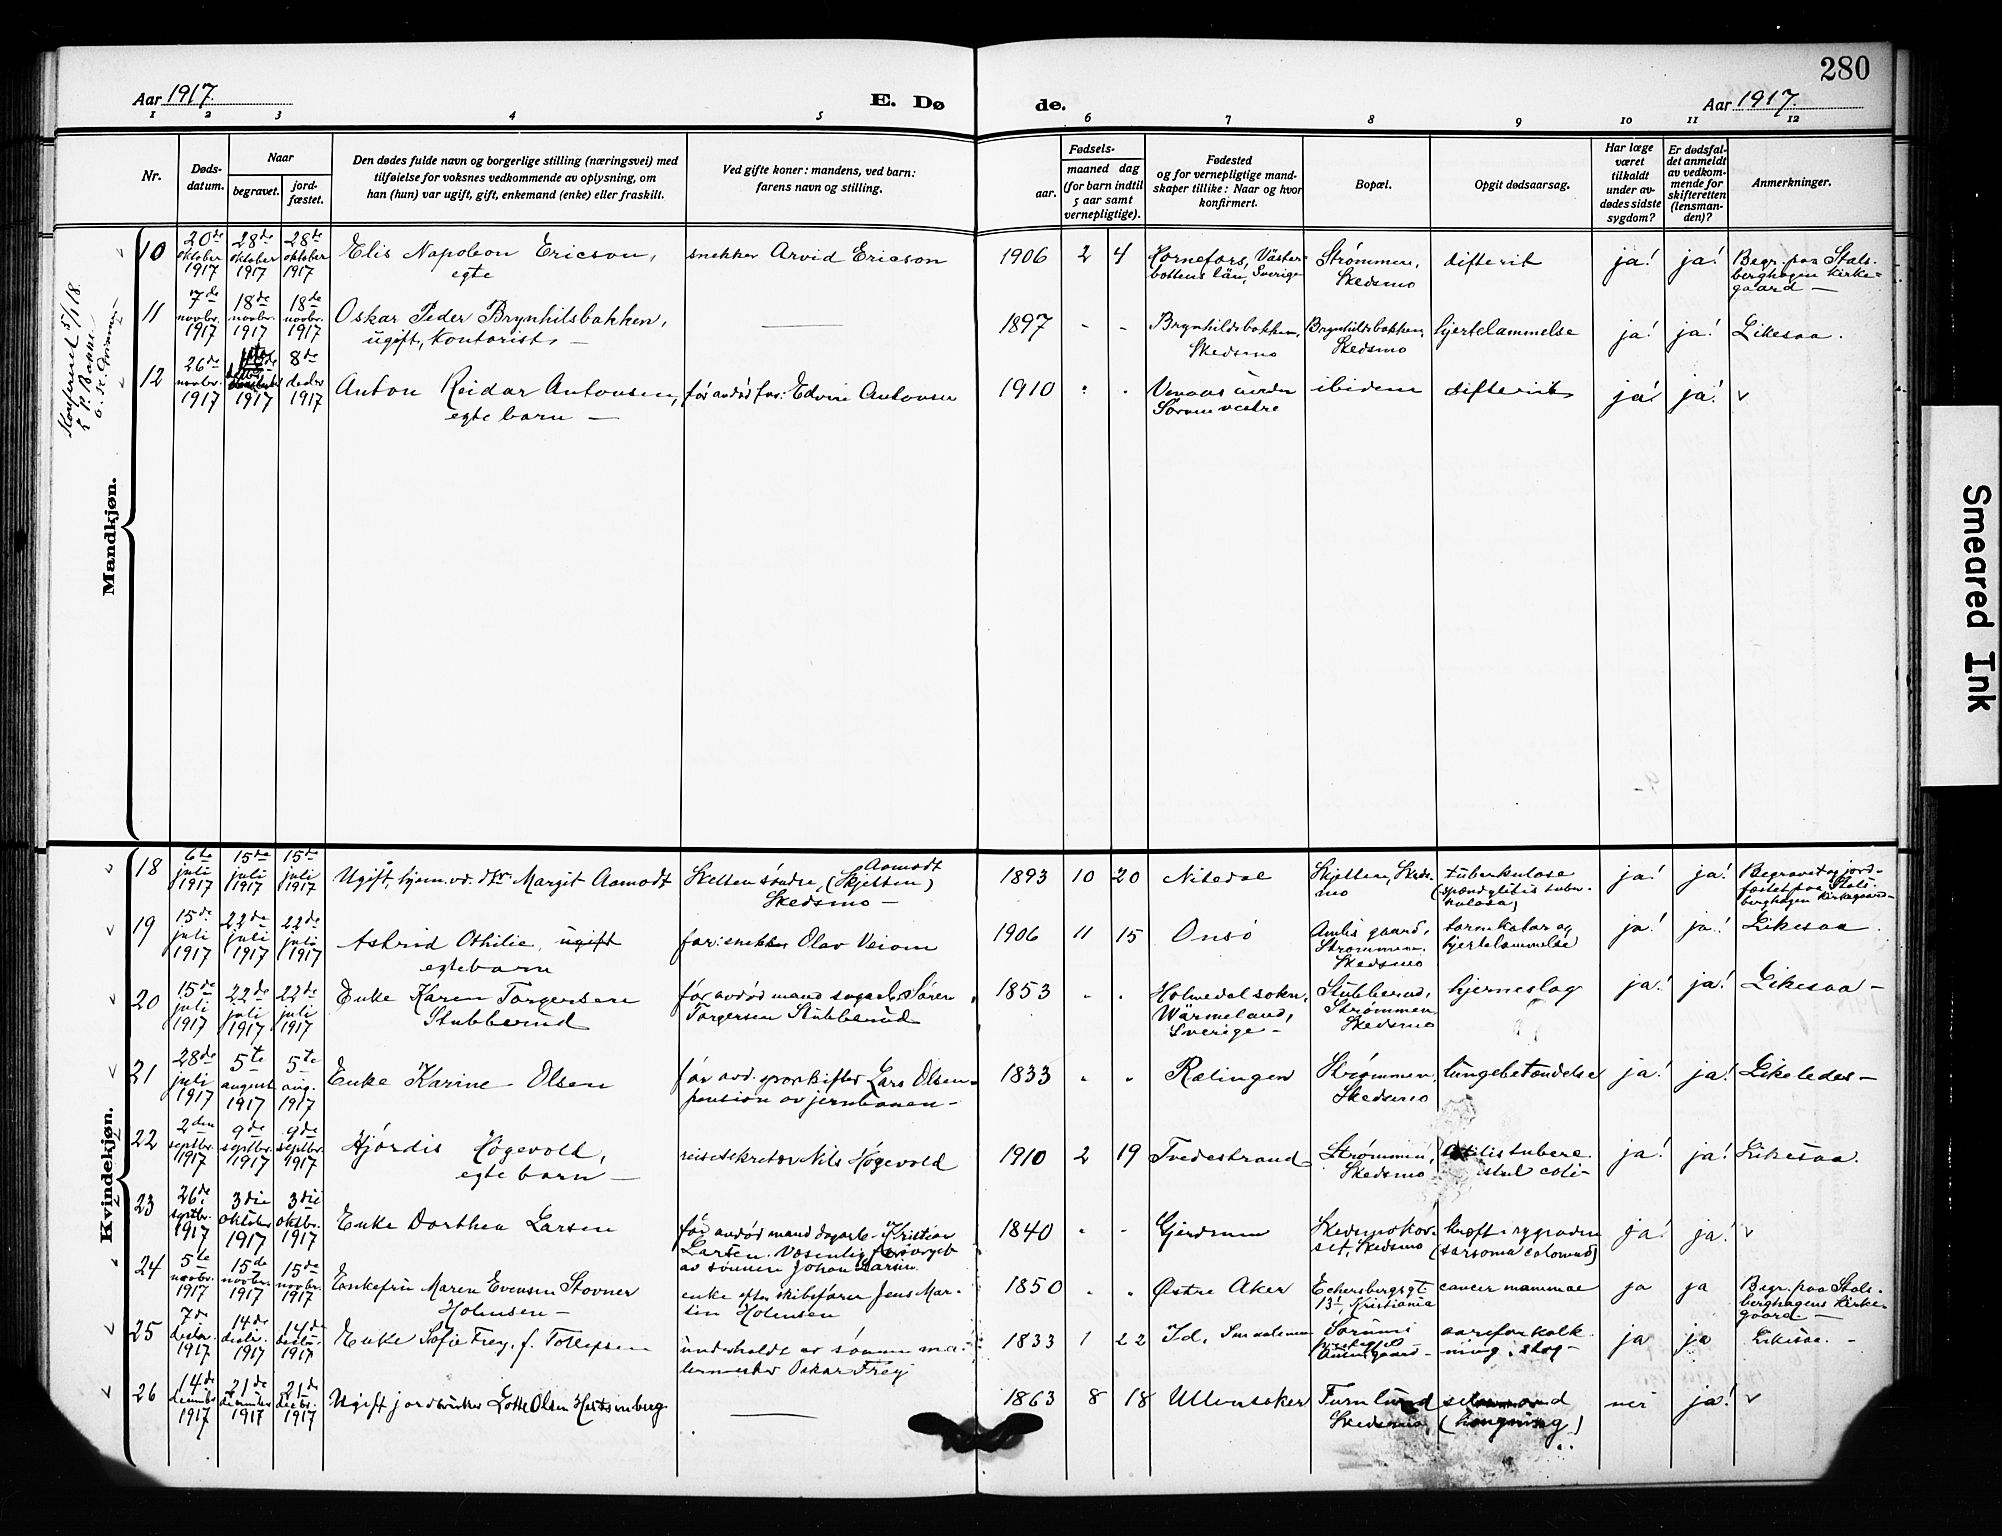 280
Aar 1917.
E. Dø
de.
Aar 1917.
1 2 3 4 5 6 7 8 9 10 11 12
Nr.
Døds-
datum.
Naar
begravet.
jord-
fæstet.
Den dødes fulde navn og borgerlige stilling (næringsvei) med
tilføielse for voksnes vedkommende av oplysning, om
han (hun) var ugift, gift, enkemand (enke) eller fraskilt.
Ved gifte koner: mandens, ved barn:
farens navn og stilling.
Fødsels-
aar.
maaned dag
(for barn indtil
5 aar samt
vernepligtige).
Fødested
og for vernepligtige mand-
skaper tillike: Naar og hvor
konfirmert.
Bopæl.
Opgit dødsaarsag.
Har læge
været
tilkaldt
under av-
dødes sidste
sygdom?
Er dødsfal-
det anmeldt
av vedkom-
mende for
skifteretten
(lensman-
den)?
Anmerkninger.
Mandkjøn.
Konferert 5/1 18.
10
20de oktober 1917
28de oktober 1917
28de oktober 1917
Elis Napoleon Ericson,
egte
snekker Arvid Ericson
1906 2 4
Hörnefors, Väster-
bottens län, Sverige
Strømmen,
Skedsmo
difterit
ja! ja!
Begr. paa Stals-
berghagen kirke-
gaard —
11
7de novbr. 1917
18de novbr. 1917
18de novbr. 1917
Oskar Peder Brynhilsbakken,
ugift, kontorist, —
—
1897 - -
Brynhildsbakken,
Skedsmo
Brynhildsbakken,
Skedsmo
hjertelammelse
ja! ja!
Likesaa.
12
26de novbr. 1917
1917
8de decbr 1917
Anton Reidar Antonsen,
egte barn —
før avdød far: Edvin Antonsen
1910
under
Sørum vestre
ibidem
difterit
ja! ja!
Kvindekjøn.
18
6te juli 1917
15de juli 1917
15de juli 1917
Ugift, hjem.v. dtr Margit Aamodt
Aamodt
Sketten søndre, (Skjetten)
Skedsmo —
1893 10 20
Nitedal
Skjetten, Skeds-
mo
tuberkulose
(spondylitis tuber-
kulosa)
ja! ja!
Begravet og jord-
fæstet paa Stals-
berghagen kirkegaard —
19
15de juli 1917
22de juli 1917
22de juli 1917
Astrid Othilie, ugift
egtebarn
far: snekker Olav Veiom
1906 11 15
Onsö
gaard,
Strømmen,
Skedsmo
tarmkatar og
hjertelammelse
ja! ja!
Likesaa.
20
15de juli 1917
22de juli 1917
22de juli 1917
Enke Karen Torgersen
Stubberud
før avdød mand sagarb. Søren
Torgersen Stubberud
1853
Holmedal sokn,
Wärmeland,
Sverige —
Stubberud,
Strømmen,
Skedsmo
hjerneslag
ja! ja!
Likesaa —
21
28de juli 1917
5te august 1917
5te aug. 1917
Enke Karine Olsen
før avd. sporskifter Lars Olsen.
pension av jernbanen —
1833
Rælingen
Strømmen,
Skedsmo
lungebetændelse
ja! ja!
Likeledes —
22
2den septbr. 1917
9de septbr. 1917
9de septbr. 1917
Hjørdis Høgevold,
egte barn —
reisesekretær Nils Høgevold
1910 2 19
Tvedestrand
Strømmen,
Skedsmo
ja! ja!
Likesaa.
23
26de septbr. 1917
3die oktober 1917
3die oktbr. 1917
Enke Dorthea Larsen
før avdød mand dagarb. Kristian
Larsen. Væsenlig forsørget
av sønnen Johan Larsen
1840 - -
Gjerdrum
Skedsmokor-
set, Skedsmo
kræft i rygraden
ja! ja!
24
5te novbr. 1917
15de novbr. 1917
15de novbr. 1917
Enkefru Maren Evensen Stovner
Holmsen —
enke efter skibsfører Jens Mar-
tin Holmsen
1850
Østre Aker
Eckersbergsgt
13, Kristiania
cancer mammae
ja ja
Begr. paa Stals-
berghagens kirke-
gaard —
25
7de decbr. 1917
14de decbr. 1917
14de decbr. 1917
Enke Sofie Frey, f. Tollefsen
underholdt av sønnen ma-
lermester Oskar Frey
1833 1 22
Id,
aareforkalk-
ning, slag —
ja ja
Likesaa. —
26
14de december 1917
21de december 1917
21de decbr. 1917
Ugift jordbruker Lotte Olsen
—
1863 8 18
Ullensaker
Furulund
Skedsmo,
selvmord
(hængning)
nei ja!
Smeared Ink